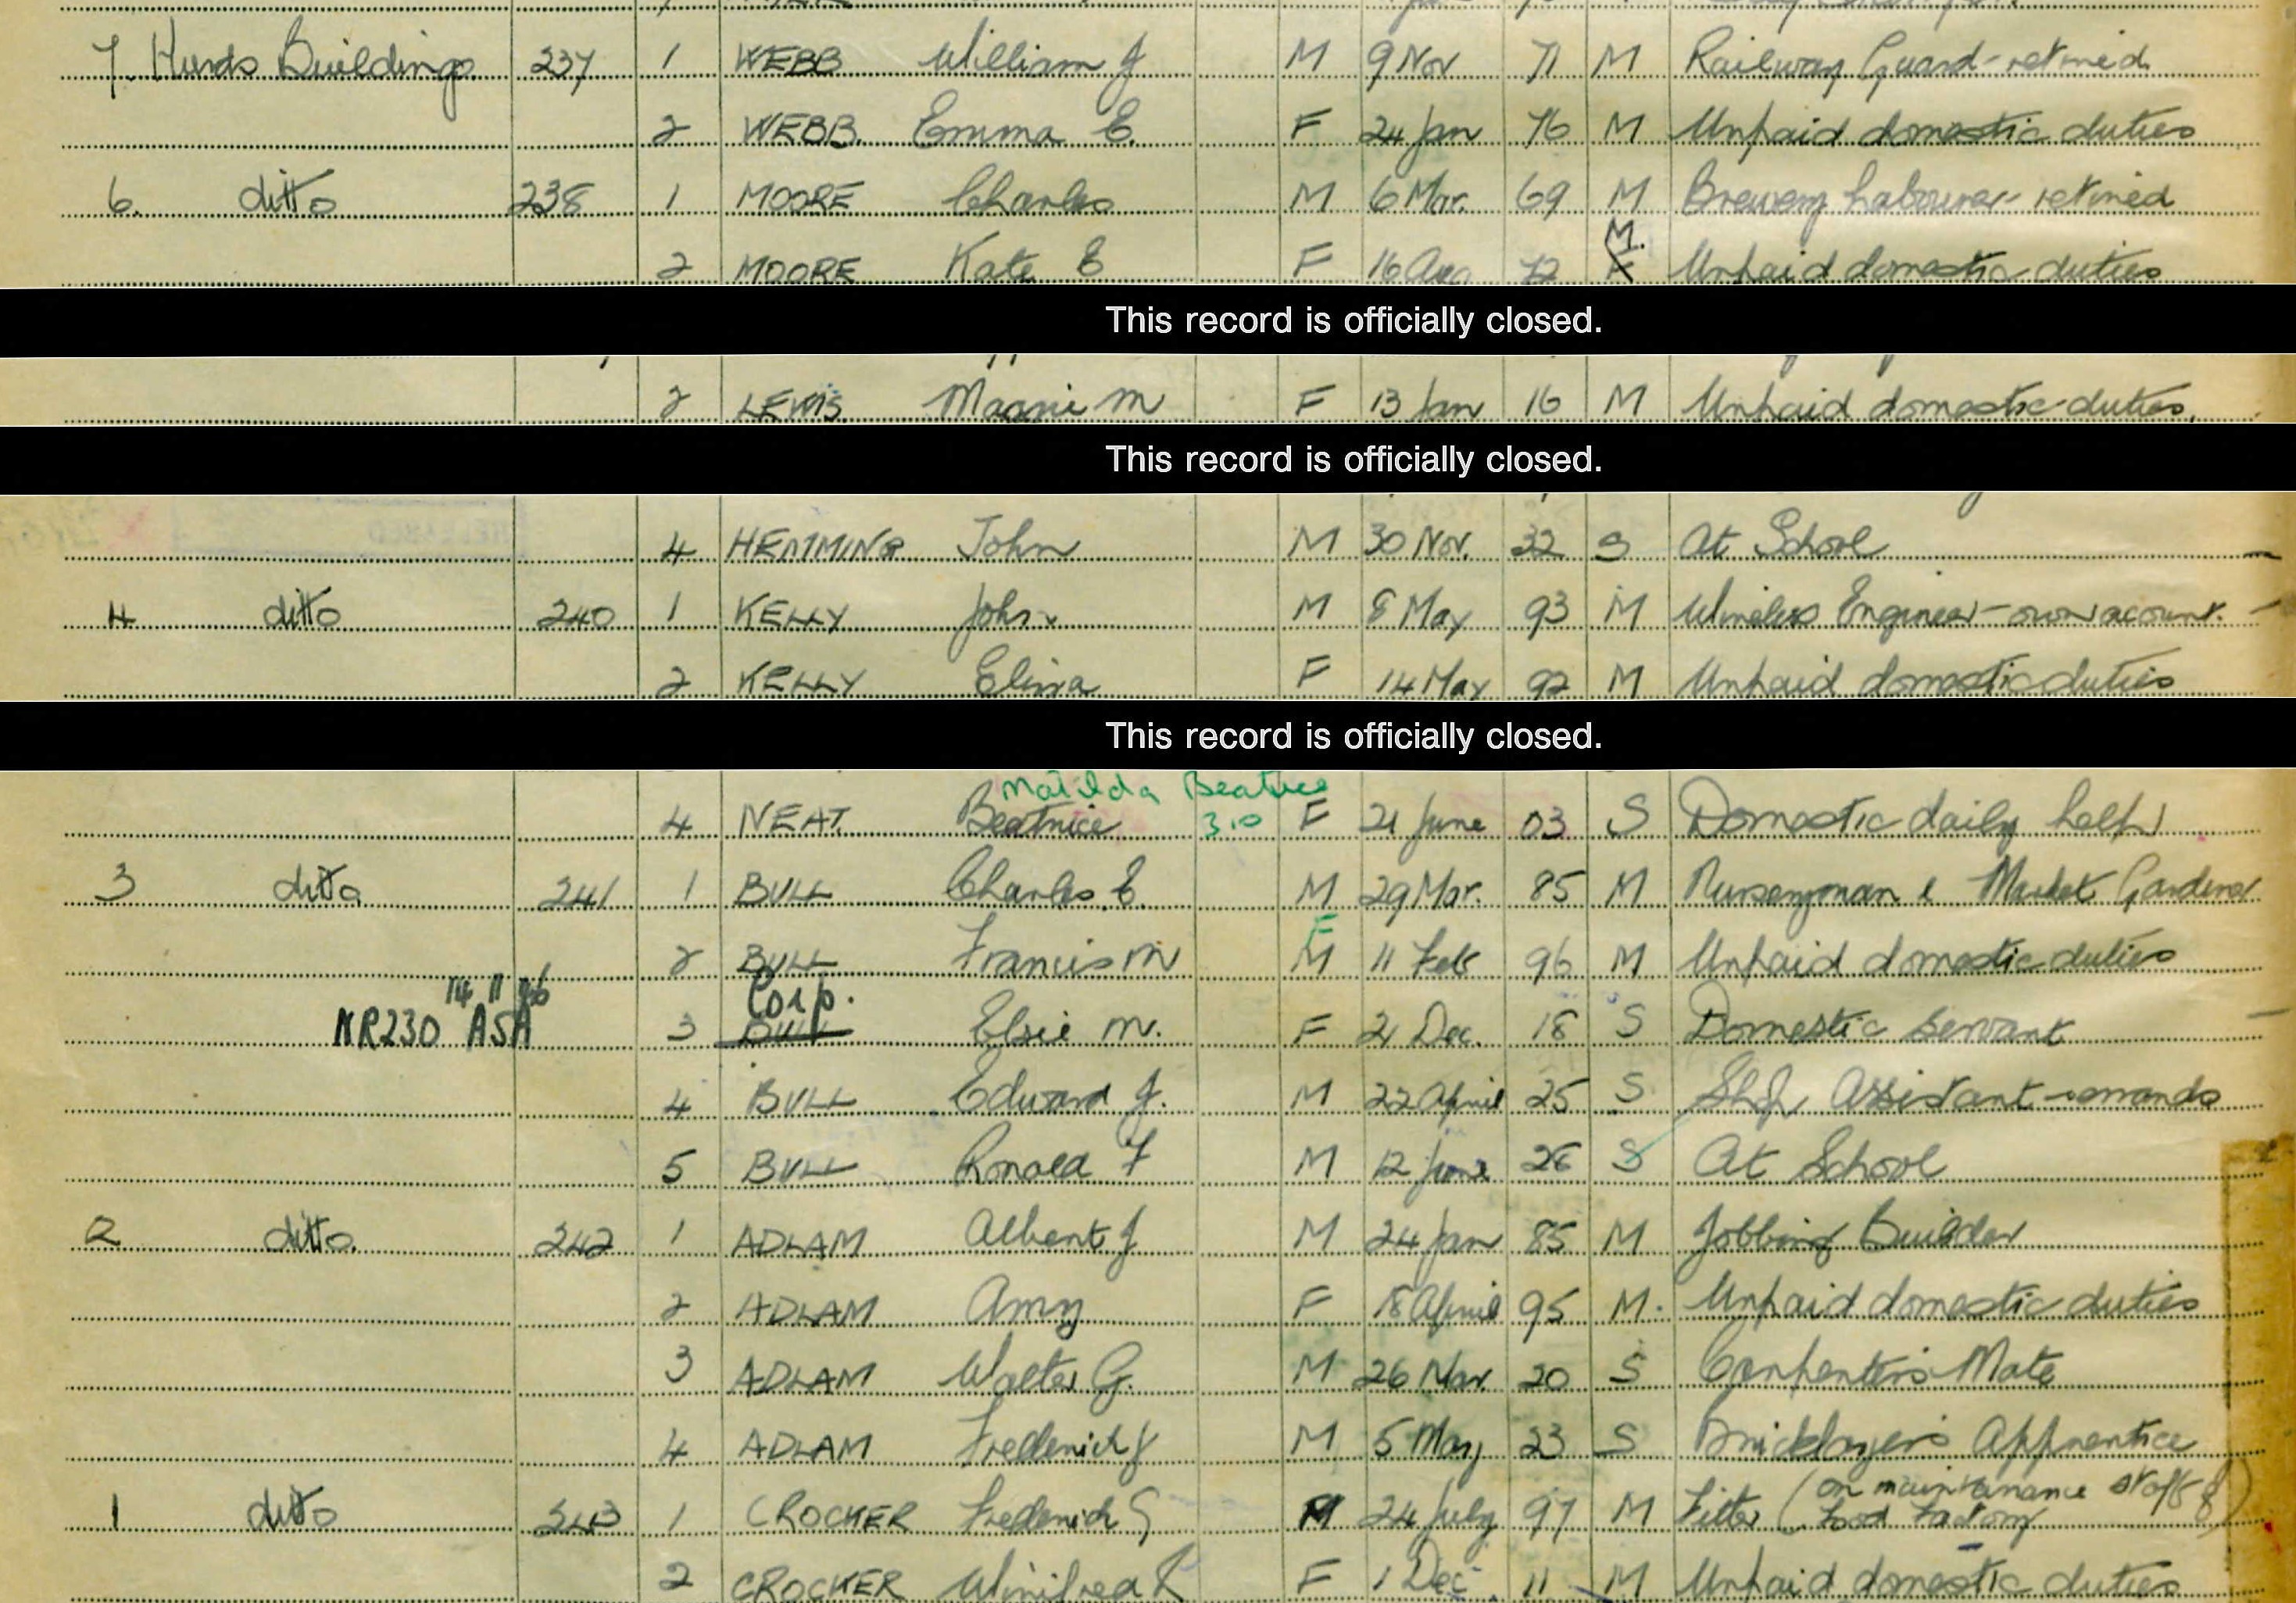 7. Hurds Buildings 237 1 WEBB William J M 9 Nov 71 M Railway Guard - retired
2 WEBB. Emma E. F 24 Jan 76 M Unpaid domestic duties
6. ditto 238 1 MOORE Charles M 6 Mar. 69 M Brewery Labourer - retired
M.
2 MOORE Kate E F 16 Aug 72 Unpaid domestic duties
This record is officially closed.
2 LEWIS Maggie M F 13 Jan 16 M Unpaid domestic duties.
This record is officially closed.
4 HEMMING John M 30 Nov. 32 S At School
4 ditto 240 1 KELLY John M 8 May 93 M Wireless Engineer - own account.
2 KELLY Eliza F 14 May 92 M Unpaid domestic duties
This record is officially closed.
Matilda Beatrice
4 NEAT. Beatrice 3.10 F 21 June 03 S Domestic daily help
3 ditto 241 1 BULL Charles E. M 29 Mar. 85 M Nurseryman & Market Gardener
F
2 BULL Francis M M 11 Feb 96 M Unpaid domestic duties
14 11 46 Corp.
NR230 ASA 3 BULL Elsie M. F 21 Dec. 18 S Domestic Servant
4 BULL Edward J. M 22 April 25 S Shop Assistant - errands
5 BULL Ronald F M 12 June 26 S At School
2 ditto. 242 1 ADLAM Albert J M 24 Jan 85 M Jobbing Builder
2 ADLAM Amy F 18 April 95 M. Unpaid domestic duties
3 ADLAM Walter G. M 26 Mar. 20 S Carpenter's Mate
4 ADLAM Frederick J M 5 May 23 S Bricklayer's Apprentice
1 ditto 243 1 CROCKER Frederick G M 24 July 97 M Fitter (on maintenance staff of Food Factory)
2 CROCKER Winifred R F 1 Dec. 11 M Unpaid domestic duties